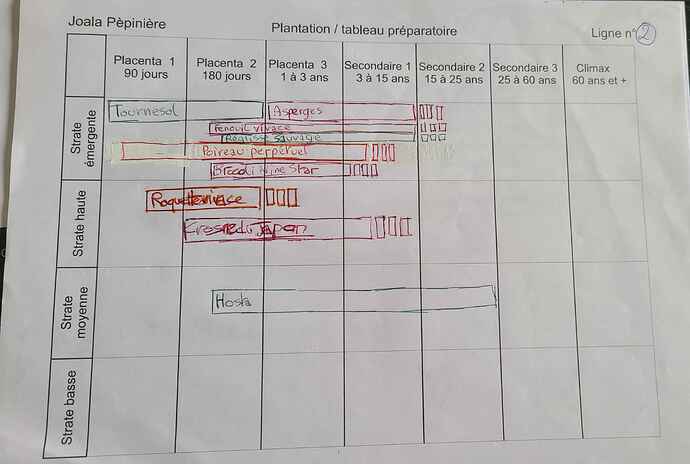 Joala Pèpinière
Plantation / tableau préparatoire
Ligne n° 2
Placenta 1
90 jours
Placenta 2
180 jours
Placenta 3
1 à 3 ans
Secondaire 1
3 à 15 ans
Secondaire 2
15 à 25 ans
Secondaire 3
25 à 60 ans
Climax
60 ans et +
Strate
émergente
Tournesol
Asperges
Fenouil vivace
Réglisse sauvage
Poireau perpétuel
Brocoli Nine Star
Strate haute
Roquette vivace
Crosne du Japon
Strate
moyenne
Hosta
Strate basse